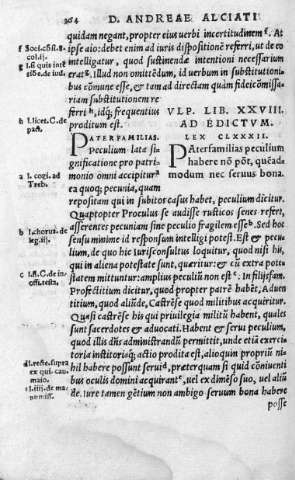 264 D. ANDREAE ALCIATI
quidam negant, propter eius verbi incertitudinem. At
ipse aio: debet enim ad iuris dispositionē referri, ut de eo
intelligatur, quod sustinendae intentioni necessarium
erat. Illud non omittēdum, id verbum in substitutioni
bus cōmune esse, & tam ad directam quàm fideicōmissa-
riam substitutionem re
ferri, idq; frequentius
proditum est.
VLP. LIB. XXVIII.
AD EDICTVM.
LEX CLXXXII.
PAterfamilias peculium
habere nō pōt, quēad-
modum nec seruus bona.
PATERFAMILIAS.
Peculium late si-
gnificatione pro patri-
monio omni accipitur
ea quoq; pecunia, quam
repositam qui in subitos casus habet, peculium dicitur.
Quapropter Proculus se audisse rusticos senes refert,
asserentes pecuniam sine peculio fragilem esse. Sed hoc
sensu minime id responsum intelligi potest. Est & pecu-
lium, de quo hic Iurisconsultus loquitur, quod nisi his,
qui in aliena potestate sunt, quæritur: & cū extra pote
statem mittuntur: amplius peculiū non est. In filijsfam.
Profectitium dicitur, quod propter patrē habēt, Aduen
titium, quod aliūde, Castrēse quod militibus acquiritur.
Quasi castrēse his qui priuilegia militū habent, quales
sunt sacerdotes & aduocati. Habent & serui peculium,
quod illis dn̄s administrandū permittit, unde etiā exerci
toria institoriaq; actio prodita est, alioquin propriū ni-
hil habere possunt serui, præterquam si quid conniuenti
bus oculis domini acquirant, uel ex dimēso suo, uel aliū
de. Iure tamen gētium non ambigo seruum bona habere
posse
f Soci.cōsi.
g l.si quis inte
b l.licet. C. de
pact.
a l. cogi. ad
Treb.
b l.chorus. de
leg. iij.
c l.fi. C. de in-
offi.testa.
d l.recte. supra
ex qui. cau.
maio.
e l.iiij. de ma
numiss.